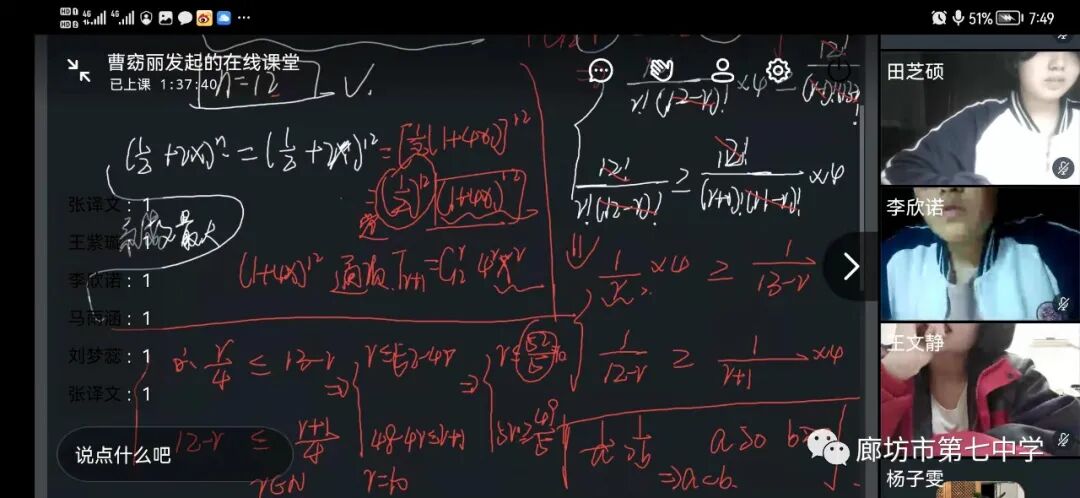 HD 1 4G 4G
HD 2
51% 7:49
曹窈丽发起的在线课堂
已上课 1:37:40
n=12 √.
(1/2+2x)ⁿ=(1/2+2x)¹²=[1/2(1+4x)]¹²
=(1/2)¹²(1+4x)¹²
最大
(1+4x)¹² 通项 Tr+1=C₁₂ʳ 4ʳxʳ
r!(12-r)! ×4
12!/r!(12-r)! ≥ 12!/(r+1)!(11-r)! ×4
1/r ×4 ≥ 1/13-r
1/12-r ≥ 1/r+1 ×4
r/4 ≤ 13-r
⇒ r≤52-4r
⇒ r≤52/5
12-r ≤ r+1/4
48-4r≤r+1
r≥49/5
r∈N
r=10
1/a>1/b a>0 b>
⇒a<b.
张译文：1
王紫
李欣诺：1
马雨涵：1
刘梦蕊：1
张译文：1
说点什么吧
田芝硕
李欣诺
王文静
杨子雯
廊坊市第七中学